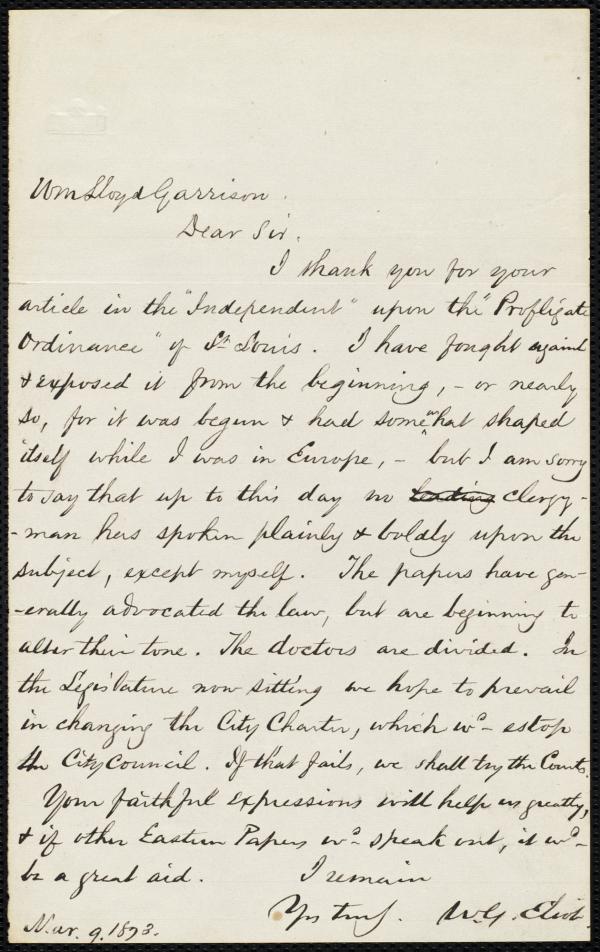 Wm Lloyd Garrison.
Dear Sir.
I thank you for your
article in the "Independent" upon the "Profligate
Ordinance" of St. Louis. I have fought against
& exposed it from the beginning, - or nearly
so, for it was begun & had somewhat shaped
itself while I was in Europe, - but I am sorry
to say that up to this day no leading clergy-
-man has spoken plainly & boldly upon the
subject, except myself. The papers have gen-
-erally advocated the law, but are beginning to
alter their tone. The doctors are divided. In
the Legislature now sitting we hope to prevail
in changing the City Charter, which wd- estop
the City Council. If that fails, we shall try the Courts.
Your faithful expressions will help us greatly,
& if other Eastern Papers wd- speak out, it wd-
be a great aid. I remain
Yrs truly. W. G. Eliot.
Mar. 9. 1873.